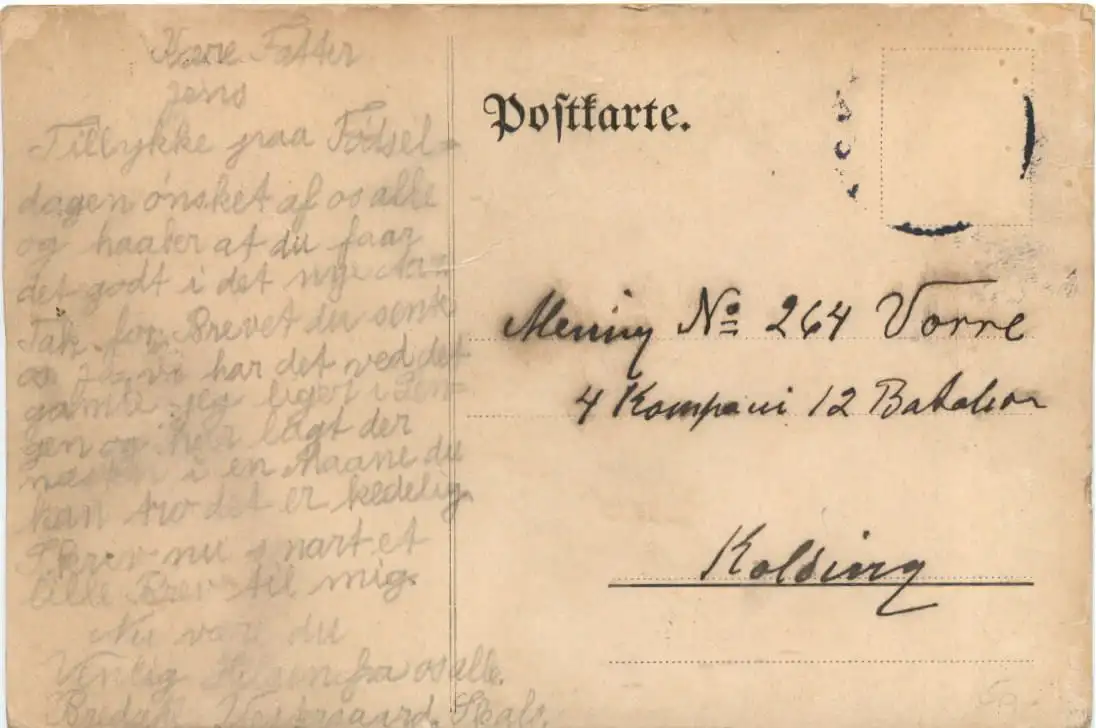 Kære Fætter
Jens
Tillykke paa Fødsel=
dagen ønsket af os alle
og haaber at du faar
det godt i det nye Aar
Tak for Brevet du sente
os Ja, vi har det ved det
gamle jeg liger i Sen=
gen og har lagt der
næsten i en Maane du
kan tro det er kedelig.
Skriv nu snart et
lille Brev til mig.
Nu være du
Venlig Hilsen fra os alle.
Vestergaard. Skals.
Postkarte.
Mening No 264 Vorre
4 Kompani 12 Batalion
Kolding